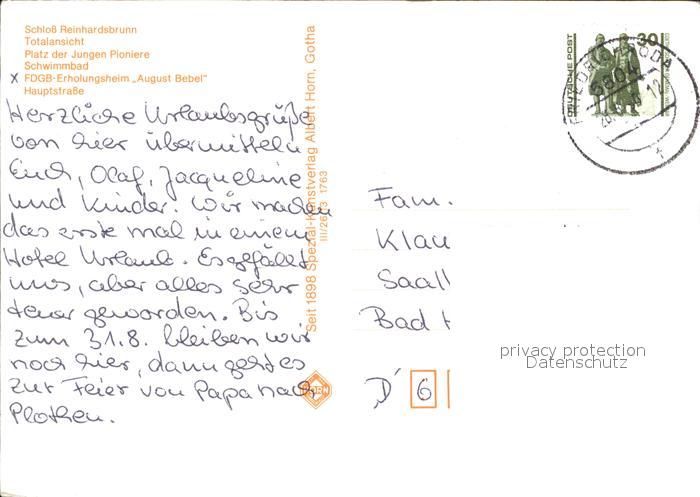 Schloß Reinhardsbrunn
Totalansicht
Platz der Jungen Pioniere
Schwimmbad
x FDGB-Erholungsheim „August Bebel"
Hauptstraße
Herzliche Urlaubsgrüße
von hier übermitteln
Euch, Olaf, Jacqueline
und Kinder. Wir machen
das erste mal in einem
Hotel Urlaub. Es gefällt
uns, aber alles sehr
teuer geworden. Bis
zum 31.8. bleiben wir
noch hier, dann geht es
zur Feier von Papa nach
Plothen.
Seit 1898 Spezial-Kunstverlag Albert Horn, Gotha
III/26/13 1763
DEUTSCHE POST
30
5804
12
Fam.
Klau
Saal
Bad
D 6
privacy protection
Datenschutz